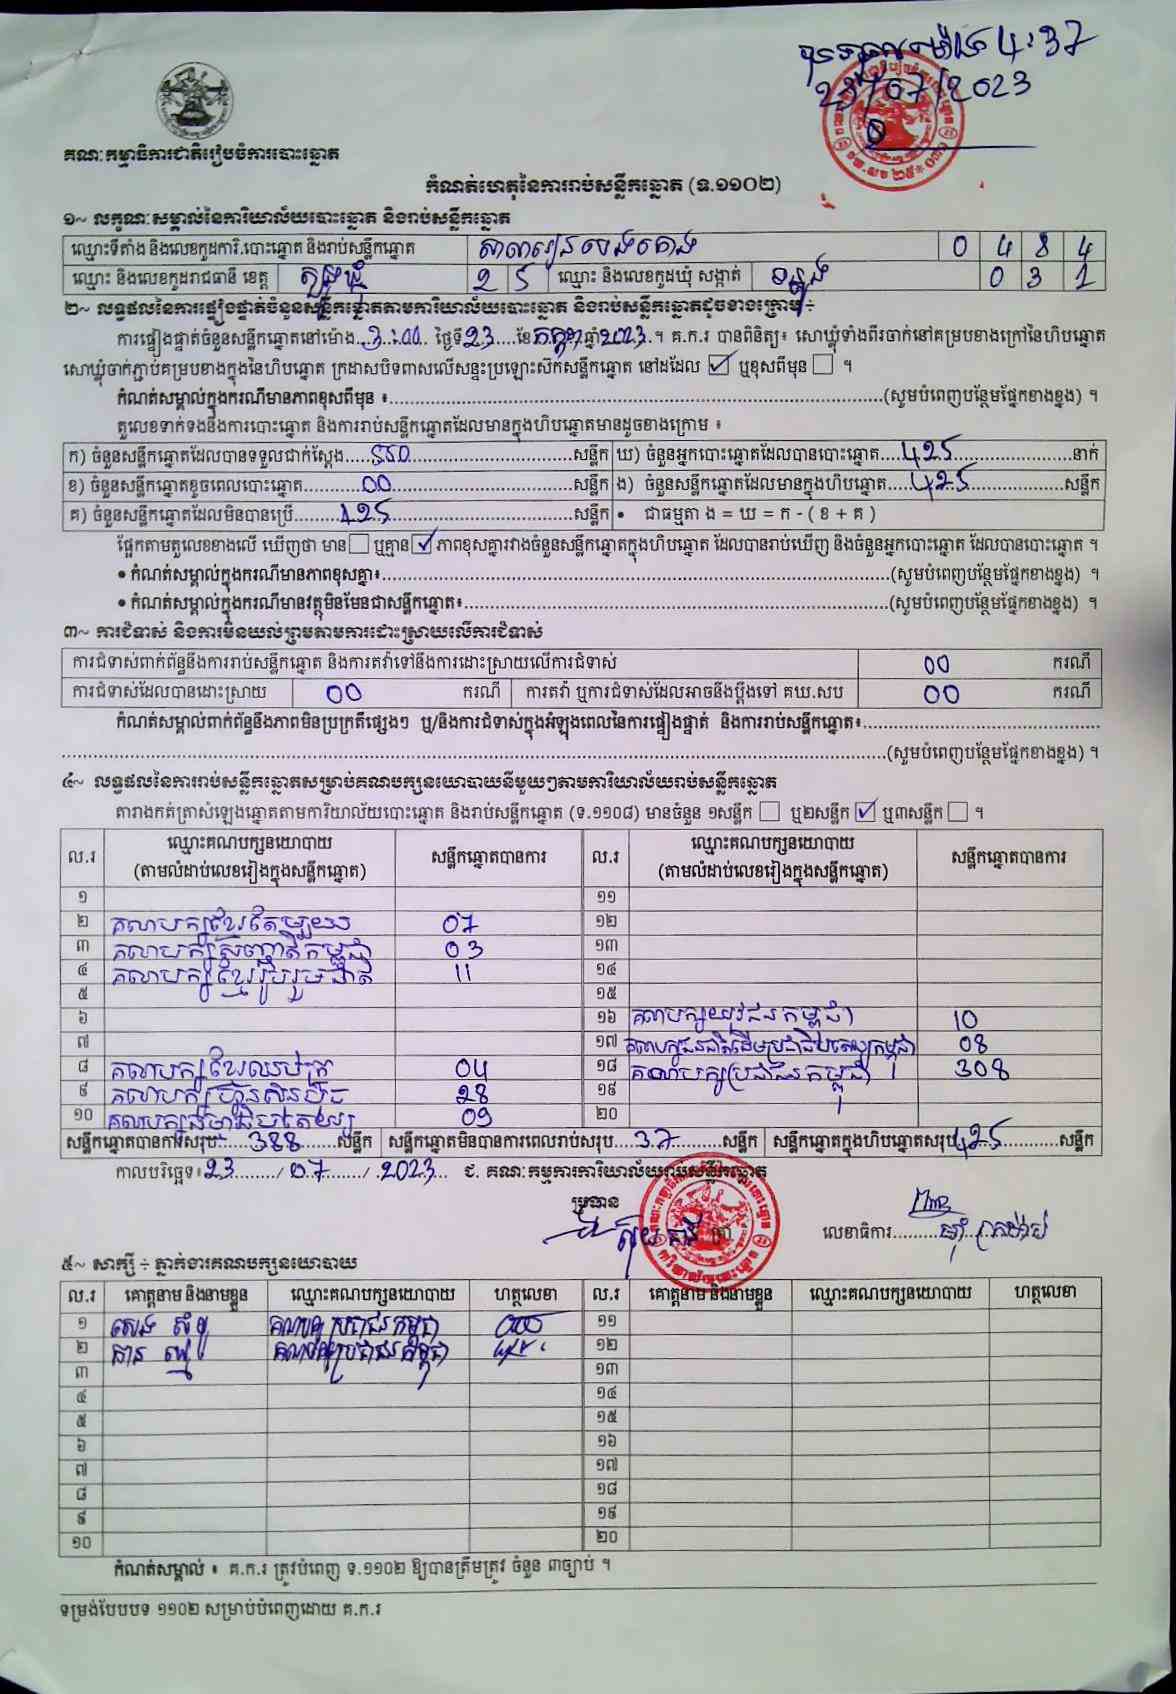 4:37
23/07/2023
គណៈកម្មាធិការជាតិរៀបចំការបោះឆ្នោត
កំណត់ហេតុនៃការរាប់សន្លឹកឆ្នោត (ទ.១១០២)
១~ លក្ខណៈសម្គាល់នៃការិយាល័យបោះឆ្នោត និងរាប់សន្លឹកឆ្នោត
ឈ្មោះទីតាំង និងលេខកូដការិ.បោះឆ្នោត និងរាប់សន្លឹកឆ្នោត សាលារៀន 0 4 8 4
ឈ្មោះ និងលេខកូដរាជធានី ខេត្ត ត្បូងឃ្មុំ 2 5 ឈ្មោះ និងលេខកូដឃុំ សង្កាត់ 0 3 1
២~ លទ្ធផលនៃការផ្ទៀងផ្ទាត់ចំនួនសន្លឹកឆ្នោតតាមការិយាល័យបោះឆ្នោត និងរាប់សន្លឹកឆ្នោតដូចខាងក្រោម ÷
ការផ្ទៀងផ្ទាត់ចំនួនសន្លឹកឆ្នោតនៅម៉ោង...3:00... ថ្ងៃទី23....ខែកក្កដាឆ្នាំ2023..។ គ.ក.រ បានពិនិត្យ៖ សោឃ្លុំទាំងពីរចាក់នៅគម្របខាងក្រៅនៃហិបឆ្នោត
សោឃ្លុំចាក់ភ្ជាប់គម្របខាងក្នុងនៃហិបឆ្នោត ក្រដាសបិទពាសលើសន្ទះប្រឡោះស៊កសន្លឹកឆ្នោត នៅដដែល ☑ ឬខុសពីមុន ☐ ។
កំណត់សម្គាល់ក្នុងករណីមានភាពខុសពីមុន ៖..........(សូមបំពេញបន្ថែមផ្នែកខាងខ្នង) ។
តួលេខទាក់ទងនឹងការបោះឆ្នោត និងការរាប់សន្លឹកឆ្នោតដែលមានក្នុងហិបឆ្នោតមានដូចខាងក្រោម ៖
ក) ចំនួនសន្លឹកឆ្នោតដែលបានទទួលជាក់ស្តែង.....550..........សន្លឹក ឃ) ចំនួនអ្នកបោះឆ្នោតដែលបានបោះឆ្នោត....425..........នាក់
ខ) ចំនួនសន្លឹកឆ្នោតខូចពេលបោះឆ្នោត..........00..........សន្លឹក ង) ចំនួនសន្លឹកឆ្នោតដែលមានក្នុងហិបឆ្នោត....425..........សន្លឹក
គ) ចំនួនសន្លឹកឆ្នោតដែលមិនបានប្រើ........125..........សន្លឹក • ជាធម្មតា ង = ឃ = ក - ( ខ + គ )
ផ្អែកតាមតួលេខខាងលើ ឃើញថា មាន ☐ ឬគ្មាន ☑ ភាពខុសគ្នារវាងចំនួនសន្លឹកឆ្នោតក្នុងហិបឆ្នោត ដែលបានរាប់ឃើញ និងចំនួនអ្នកបោះឆ្នោត ដែលបានបោះឆ្នោត ។
• កំណត់សម្គាល់ក្នុងករណីមានភាពខុសគ្នា៖..........(សូមបំពេញបន្ថែមផ្នែកខាងខ្នង) ។
• កំណត់សម្គាល់ក្នុងករណីមានវត្ថុមិនមែនជាសន្លឹកឆ្នោត៖..........(សូមបំពេញបន្ថែមផ្នែកខាងខ្នង) ។
៣~ ការជំទាស់ និងការមិនយល់ព្រមតាមការដោះស្រាយលើការជំទាស់
ការជំទាស់ពាក់ព័ន្ធនឹងការរាប់សន្លឹកឆ្នោត និងការតវ៉ាទៅនឹងការដោះស្រាយលើការជំទាស់ 00 ករណី
ការជំទាស់ដែលបានដោះស្រាយ 00 ករណី ការតវ៉ា ឬការជំទាស់ដែលអាចនឹងប្តឹងទៅ គឃ.សប 00 ករណី
កំណត់សម្គាល់ពាក់ព័ន្ធនឹងភាពមិនប្រក្រតីផ្សេងៗ ឬ/និងការជំទាស់ក្នុងអំឡុងពេលនៃការផ្ទៀងផ្ទាត់ និងការរាប់សន្លឹកឆ្នោត៖..........
..........(សូមបំពេញបន្ថែមផ្នែកខាងខ្នង) ។
៤~ លទ្ធផលនៃការរាប់សន្លឹកឆ្នោតសម្រាប់គណបក្សនយោបាយនីមួយៗតាមការិយាល័យរាប់សន្លឹកឆ្នោត
តារាងកត់ត្រាសំឡេងឆ្នោតតាមការិយាល័យបោះឆ្នោត និងរាប់សន្លឹកឆ្នោត (ទ.១១០៨) មានចំនួន ១សន្លឹក ☐ ឬ២សន្លឹក ☑ ឬ៣សន្លឹក ☐ ។
ល.រ ឈ្មោះគណបក្សនយោបាយ សន្លឹកឆ្នោតបានការ ល.រ ឈ្មោះគណបក្សនយោបាយ សន្លឹកឆ្នោតបានការ
(តាមលំដាប់លេខរៀងក្នុងសន្លឹកឆ្នោត) (តាមលំដាប់លេខរៀងក្នុងសន្លឹកឆ្នោត)
១ ១១
២ គណបក្សខ្មែរតែមួយ 07 ១២
៣ គណបក្សសញ្ជាតិកម្ពុជា 03 ១៣
៤ គណបក្សខ្មែររួបរួមជាតិ 11 ១៤
៥ ១៥
៦ ១៦ គណបក្សយុវជនកម្ពុជា 10
៧ ១៧ គណបក្សជនជាតិដើមប្រជាធិបតេយ្យកម្ពុជា 08
៨ គណបក្សខ្មែរឈប់ក្រ 04 ១៨ គណបក្សប្រជាជនកម្ពុជា 308
៩ គណបក្សហ៊្វុនស៊ិនប៉ិច 28 ១៩
១០ គណបក្សធម្មាធិបតេយ្យ 09 ២០
សន្លឹកឆ្នោតបានការសរុប.....388.......សន្លឹក សន្លឹកឆ្នោតមិនបានការពេលរាប់សរុប....37.......សន្លឹក សន្លឹកឆ្នោតក្នុងហិបឆ្នោតសរុប425..........សន្លឹក
កាលបរិច្ឆេទ៖23......../07......../.2023... ជ. គណៈកម្មការការិយាល័យរាប់សន្លឹកឆ្នោត
ប្រធាន
លេខាធិការ.........
៥~ សាក្សី ÷ ភ្នាក់ងារគណបក្សនយោបាយ
ល.រ គោត្តនាម និងនាមខ្លួន ឈ្មោះគណបក្សនយោបាយ ហត្ថលេខា ល.រ គោត្តនាម និងនាមខ្លួន ឈ្មោះគណបក្សនយោបាយ ហត្ថលេខា
១ គណបក្សប្រជាជនកម្ពុជា ១១
២ គណបក្សប្រជាជនកម្ពុជា ១២
៣ ១៣
៤ ១៤
៥ ១៥
៦ ១៦
៧ ១៧
៨ ១៨
៩ ១៩
១០ ២០
កំណត់សម្គាល់ ៖ គ.ក.រ ត្រូវបំពេញ ទ.១១០២ ឱ្យបានត្រឹមត្រូវ ចំនួន ៣ច្បាប់ ។
ទម្រង់បែបបទ ១១០២ សម្រាប់បំពេញដោយ គ.ក.រ